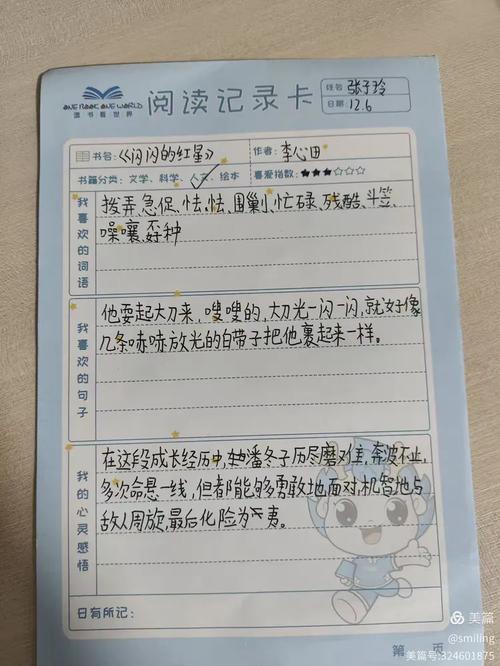 ONE BOOK ONE WORLD
读书看世界
阅读记录卡
姓名 张子玲
日期 12.6
书名:《闪闪的红星》
作者:李心田
书籍分类:文学、科学、人文、绘本
喜爱指数:★★★☆☆☆
我喜欢的词语
拨弄、急促、怯怯、围剿、忙碌、残酷、斗笠、
嗓嚷、孬种
我喜欢的句子
他耍起大刀来,嗖嗖的,大刀光一闪一闪,就好像
几条哧哧放光的白带子把他裹起来一样。
我的心灵感悟
在这段成长经历中,潘冬子历尽磨难,奔波不止,
多次命悬一线,但都能够勇敢地面对,机智地与
敌人周旋,最后化险为夷。
日有所记:
第 页
美篇
@smiling
美篇号:324601875